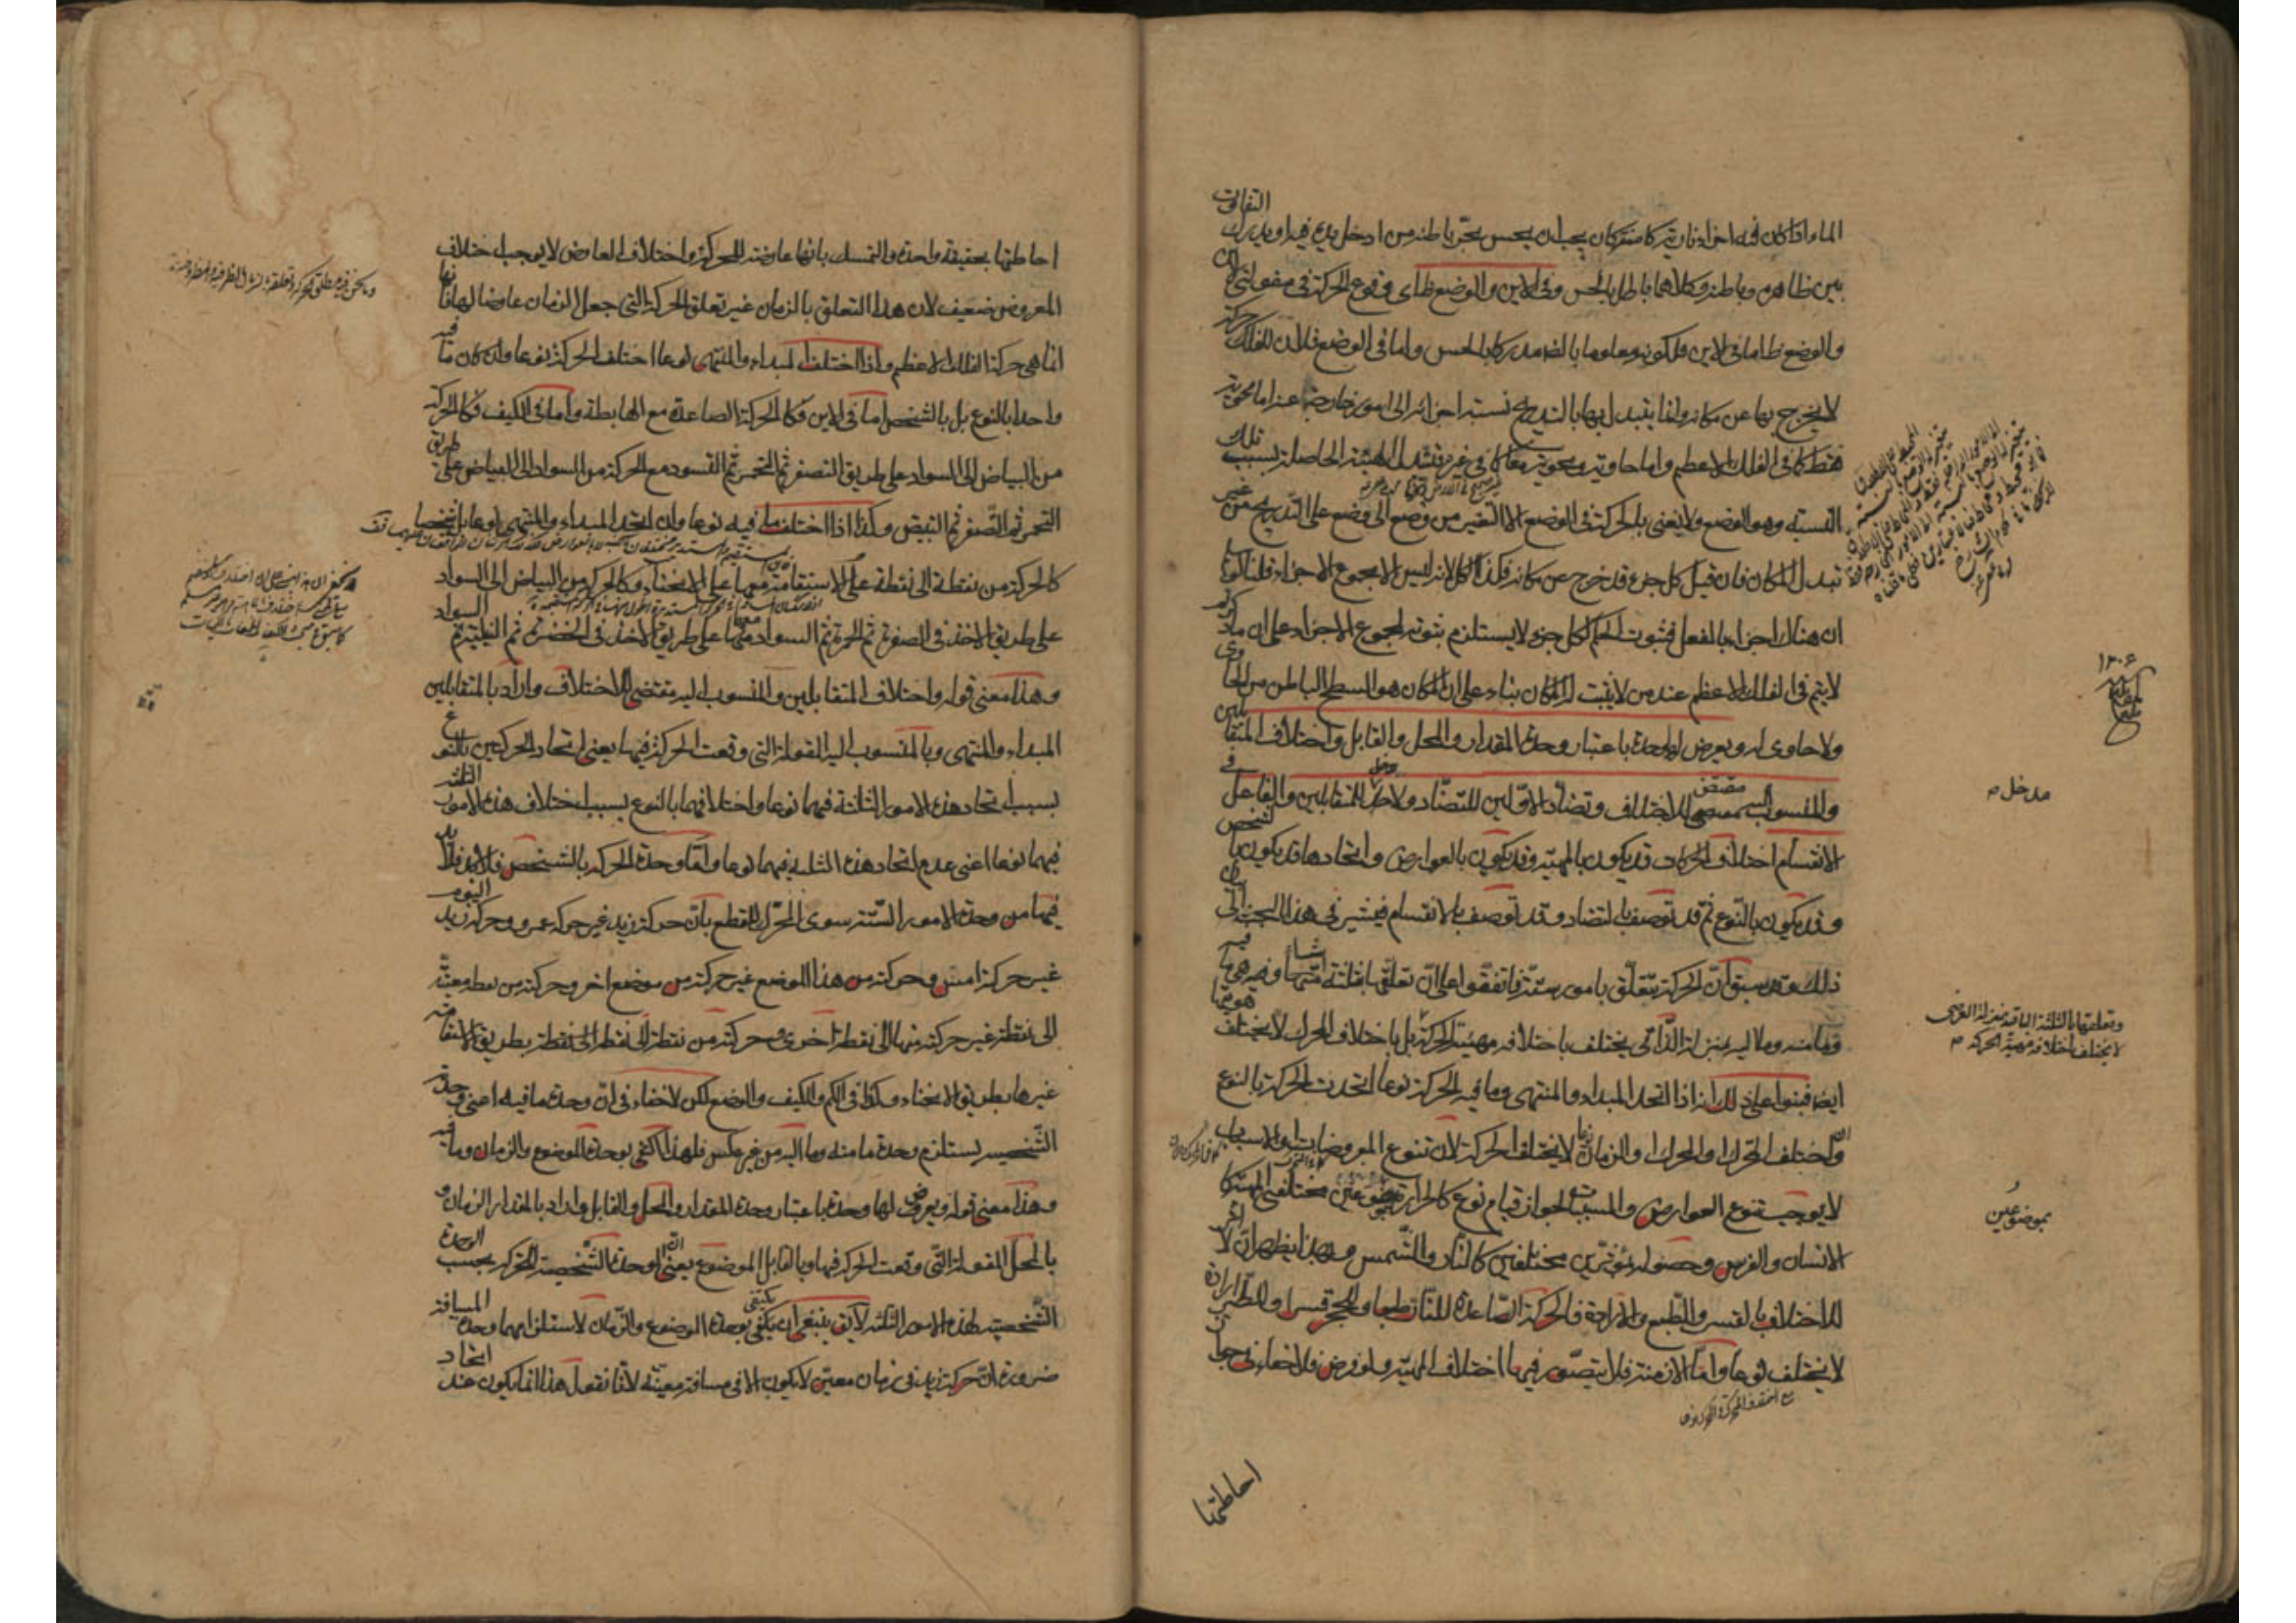 الماء اذا كان فيه اجزاء نارية كامنة كان يجب ان يحس بحر باطنه من ادخل يده فيه او يدرك التفاوت
بين ظاهره وباطنه وكلاهما باطل بالحس وفي الاين والوضع ظ اى وقوع الحركة في مقولتى الاين
والوضع ظ اما في الاين فلكونه معلوما بالضرورة مدركا بالحس واما في الوضع فلان للفلك حركة
لا يخرج بها عن مكانه وانما يتبدل بها بالتدريج نسبة اجزائه الى امور خارجة عنه اما محوية
فقط كما في الفلك الاعظم واما حاوية ومحوية معا كما في غيره فتتبدل الهيئة الحاصلة بسبب تلك
النسبة وهو الوضع ولا يعنى بالحركة في الوضع الا التغير من وضع الى وضع على التدريج من غير
تبدل المكان فان قيل كل جزء قد خرج عن مكانه فكذا الكل لانه ليس الا مجموع الاجزاء قلنا
ان هناك اجزاء بالفعل فثبوت الحكم لكل جزء لا يستلزم ثبوته لمجموع الاجزاء على ان ما ذكر
لا يتم في الفلك الاعظم عند من لا يثبت له المكان بناء على ان المكان هو السطح الباطن من الحاوى
ولا حاوى له ويعرض لها وحدة باعتبار وحدة المقدار والمحل والقابل واختلاف المتقابلين
والمنسوب اليه مقتض للاختلاف وتضاد الاولين للتضاد ولا مدخل للمتقابلين والفاعل في
الانقسام اختلاف الحركات قد يكون بالمهية وقد يكون بالعوارض واتحادها قد يكون بالشخص
وقد يكون بالنوع ثم قد توصف بالتضاد وقد توصف بالانقسام فيشير في هذا البحث الى بيان
ذلك وقد سبق ان الحركة يتعلق بامور ستة فاتفقوا على ان تعلقها بثلثة منها وهى ما فيه
وما منه وما اليه بمنزلة الذاتى يختلف باختلافه مهية الحركة بل باختلاف المحرك لا يختلف هويتها
ايضا فبنوا على ذلك انه اذا اتحد المبداء والمنتهى وما فيه الحركة نوعا اتحدت الحركة بالنوع
وان اختلف المتحرك والمحرك والزمان نوعا لا يختلف الحركة لان تنوع المعروضات والاسباب
لا يوجب تنوع العوارض والمسبب لجواز قيام نوع كالحرارة بموضوعين مختلفى المهية كا
الانسان والفرس وحصوله بمؤثرين مختلفين كالنار والشمس وبهذا يظهر ان لا اثر
للاختلاف بالقسر والطبع والارادة فالحركة الصاعدة للنار طبعا وللحجر قسرا وللطير ارادة
لا يختلف نوعا واما الازمنة فلا يتصور فيها اختلاف المهية ولو فرض فلا خفاء في جواز
احاطتها
مدخل م
وتعلقها بالثلثة الباقية بمنزلة العرضى
لا يختلف باختلافه مهية الحركة م
بموضوعين
١٢٠٤
احاطتها بحقيقة واحدة والتمسك بانها عارضة للحركة واختلاف العارض لا يوجب اختلاف
المعروض ضعيف لان هذا التعلق بالزمان غير تعلق الحركة التى جعل الزمان عارضا لها فانها
انما هى حركة الفلك الاعظم واذا اختلف المبداء والمنتهى نوعا اختلف الحركة نوعا وان كان ما فيه
واحدا بالنوع بل بالشخص اما في الاين فكالحركة الصاعدة مع الهابطة واما في الكيف فكالحركة
من البياض الى السواد على طريق التصفر ثم التحمر ثم التسود مع الحركة من السواد الى البياض على طريق
التحمر ثم التصفر ثم التبيض وكذا اذا اختلف ما فيه نوعا وان اتحد المبداء والمنتهى نوعا بل شخصا
كالحركة من نقطة الى نقطة على الاستقامة معها على الانحناء وكالحركة من البياض الى السواد
على طريق الاخذ في الصفرة ثم الحمرة ثم السواد معها على طريق الاخذ في الخضرة ثم النيلية ثم السواد
وهذا معنى قوله واختلاف المتقابلين والمنسوب اليه مقتضى للاختلاف واراد بالمتقابلين
المبداء والمنتهى وبالمنسوب اليه المقولة التى وقعت الحركة فيها يعنى اتحاد الحركتين بالنوع
بسبب اتحاد هذه الامور الثلثة فيهما نوعا واختلافهما بالنوع بسبب اختلاف هذه الامور الثلثة
فيهما نوعا اعنى عدم اتحاد هذه الثلثة فيهما نوعا واما وحدة الحركة بالشخص فلا بد
فيها من وحدة الامور الستة سوى المحرك للقطع بان حركة زيد غير حركة عمرو وحركة زيد اليوم
غير حركة امس وحركته من هذا الموضع غير حركته من موضع اخر وحركته من نقطة معينة
الى نقطة غير حركته منها الى نقطة اخرى وحركته من نقطة الى نقطة بطريق الاستقامة
غيرها بطريق الانحناء وكذا في الكم والكيف والوضع لكن لا خفاء في ان وحدة ما فيه اعنى وحدته
الشخصية يستلزم وحدة ما منه وما اليه من غير عكس فلهذا اكتفى بوحدة الموضوع والزمان وما فيه
وهذا معنى قوله ويعرض لها وحدة باعتبار وحدة المقدار والمحل والقابل واراد بالمقدار الزمان و
بالمحل المقولة التى وقعت الحركة فيها وبالقابل الموضوع يعنى ان الوحدة الشخصية للحركة بحسب الوحدة
الشخصية لهذه الامور الثلثة لا يق ينبغى ان يكتفى بوحدة الموضوع والزمان لاستلزامهما وحدة المسافة
ضرورة ان حركة زيد في زمان معين لا يكون الا في مسافة معينة لانا نقول هذا انما يكون عند اتحاد